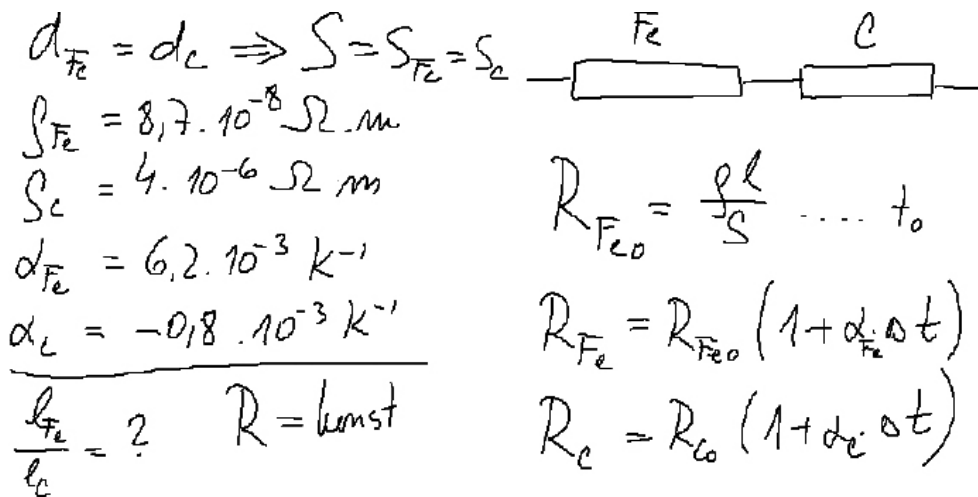 d_Fe = d_C ⇒ S = S_Fe = S_C
ρ_Fe = 8,7 . 10⁻⁸ Ω . m
ρ_C = 4 . 10⁻⁶ Ω m
α_Fe = 6,2 . 10⁻³ K⁻¹
α_C = -0,8 . 10⁻³ K⁻¹
l_Fe / l_C = ? R = konst
Fe C
R_Fe0 = ρl / S .... t₀
R_Fe = R_Fe0 (1 + α_Fe . Δt)
R_C = R_C0 (1 + α_C . Δt)